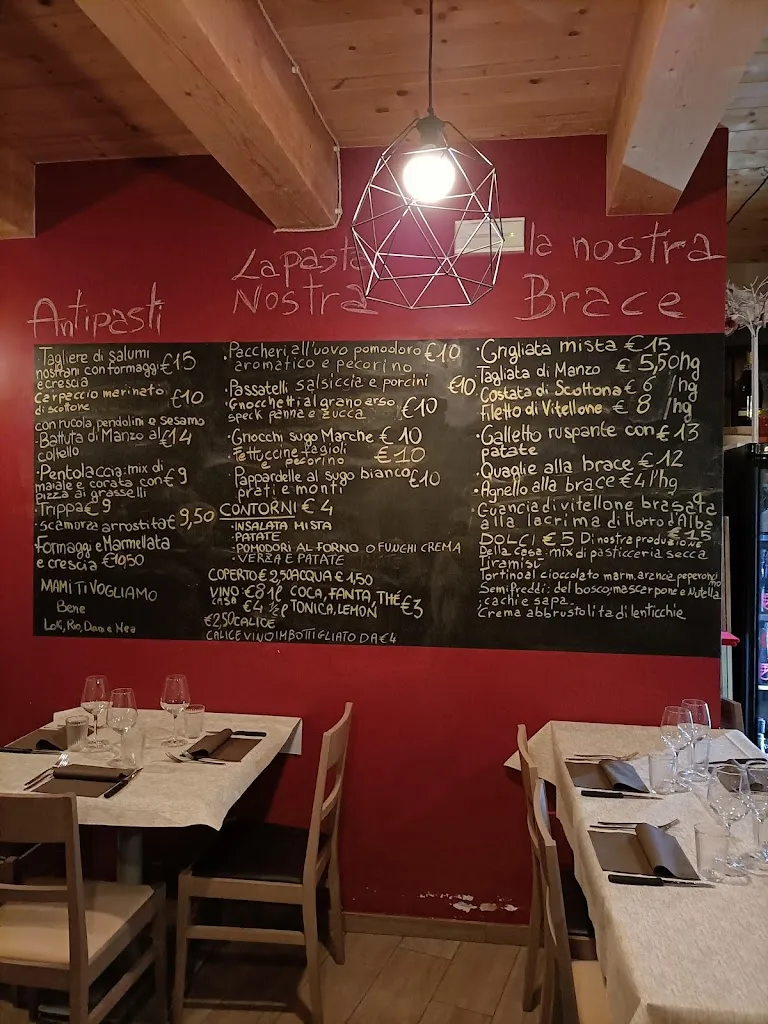 Antipasti
Tagliere di salumi
nostrani con formaggi €15
e crescia
Carpaccio marinato €10
di scottone
con rucola, pendolini e sesamo
Battuta di Manzo al €14
coltello
Pentolaccia: mix di
maiale e corata con €9
pizza ai grasselli
Trippa €9
Scamorza arrostita €9,50
Formaggi e Marmellata
e crescia €10,50
MAMI TI VOGLIAMO
Bene
Loki, Rio, Dam e Nea
La pasta
Nostra
Paccheri all'uovo pomodoro €10
aromatico e pecorino
Passatelli salsiccia e porcini €10
Gnocchetti al grano arso €10
speck panna e zucca
Gnocchi sugo Marche €10
Fettuccine fagioli €10
e pecorino
Pappardelle al sugo bianco €10
prati e monti
CONTORNI €4
- INSALATA MISTA
- PATATE
- POMODORI AL FORNO O FUNGHI CREMA
- VERZA E PATATE
COPERTO €2,50 ACQUA €1,50
VINO €8 1l COCA, FANTA, THÈ €3
CASA €4 ½l TONICA, LEMON
€2,50 CALICE
CALICE VINO IMBOTTIGLIATO DA €4
la nostra
Brace
Grigliata mista €15
Tagliata di Manzo €5,50hg
Costata di Scottona €6 /hg
Filetto di Vitellone €8 /hg
Galletto ruspante con €13
patate
Quaglie alla brace €12
Agnello alla brace €4 l'hg
Guancia di vitellone brasata
alla lacrima di Morro d'Alba
€15
DOLCI €5 Di nostra produzione
Della casa: mix di pasticceria secca
Tiramisù
Tortino al cioccolato marm. arancia peperoncino
Semifreddi: del bosco, mascarpone e Nutella
cachi e sapa
Crema abbrustolita di lenticchie